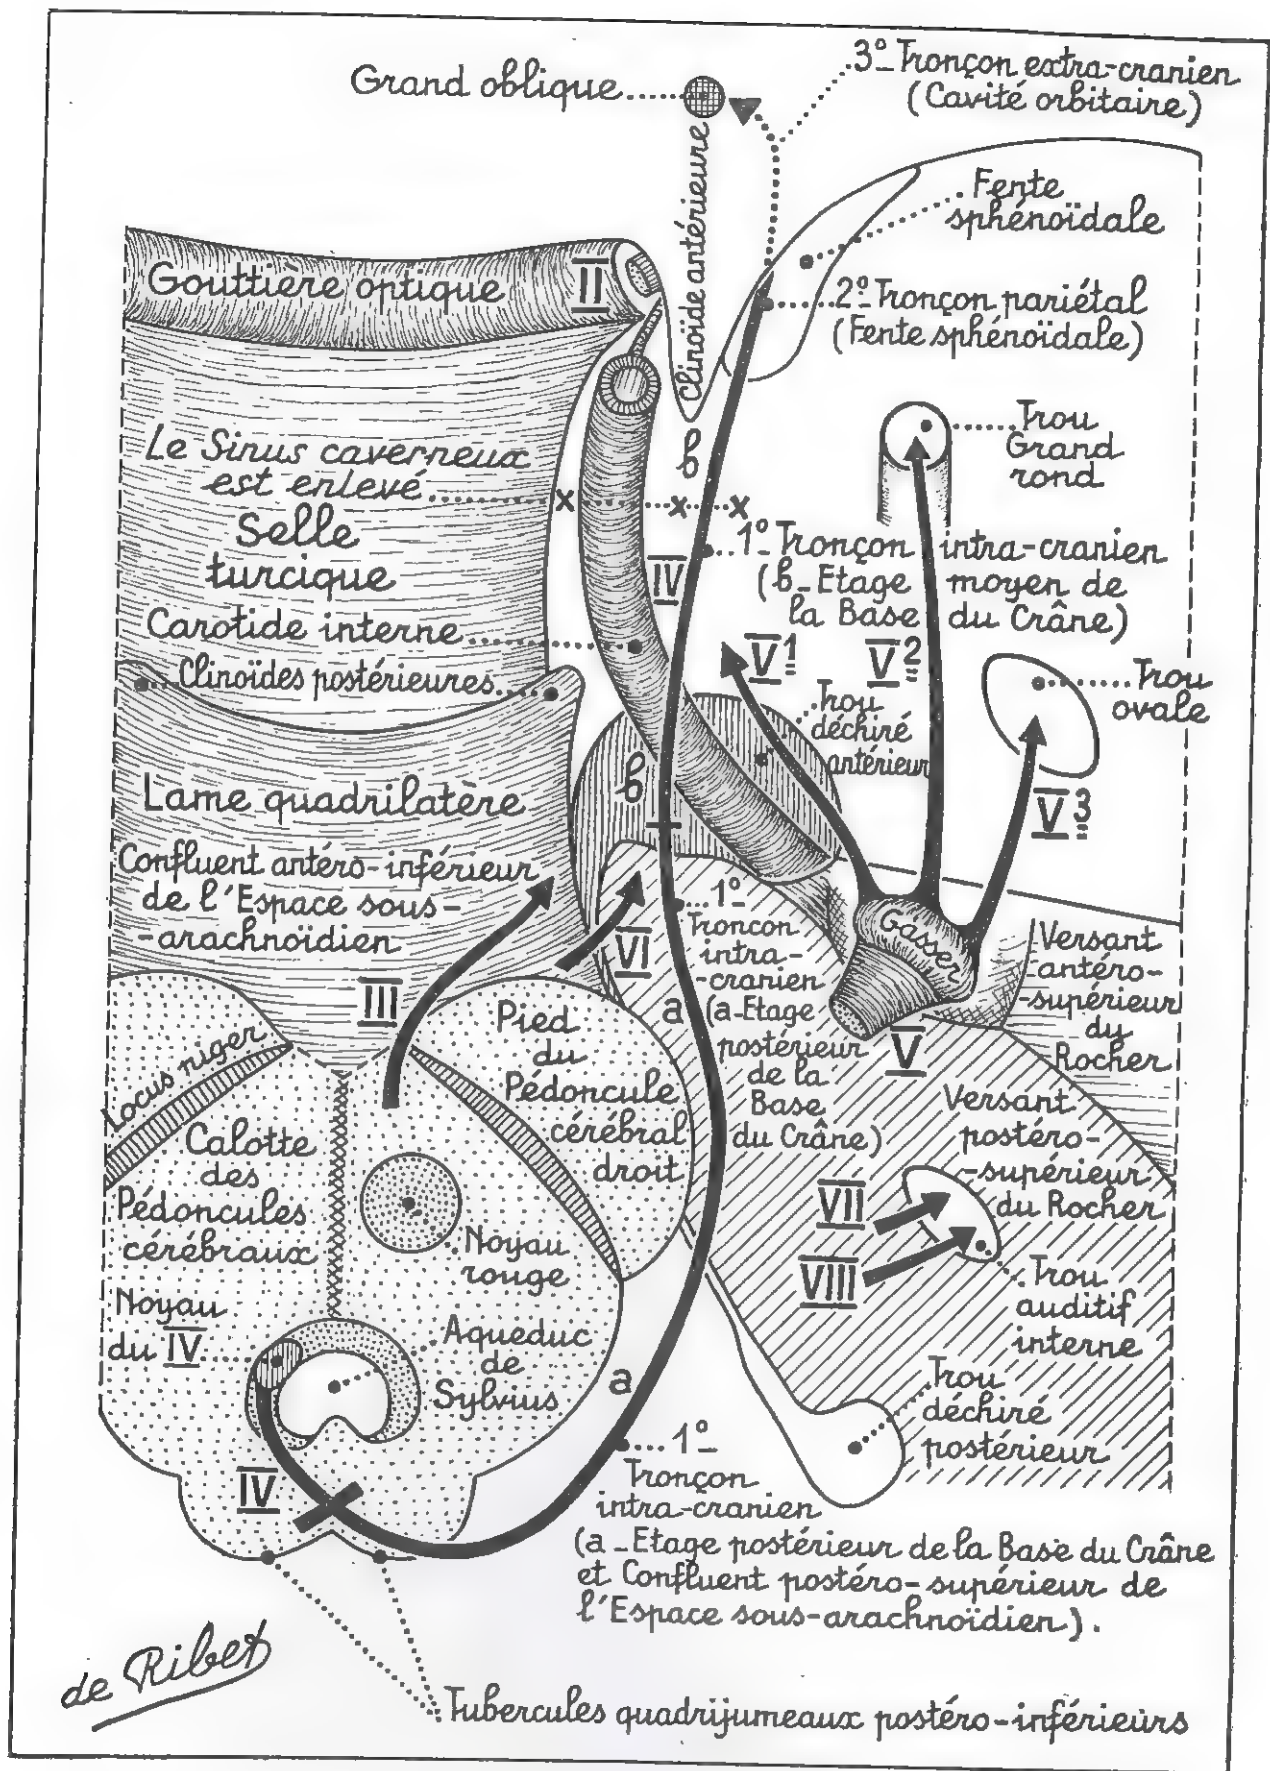 3º Tronçon extra-cranien
(Cavité orbitaire)
Grand oblique
Clinoïde antérieure
Fente
sphénoïdale
Gouttière optique
II
2º Tronçon pariétal
(Fente sphénoïdale)
Trou
Grand
rond
Le Sinus caverneux
est enlevé
x x x
b
Selle
turcique
IV
1º Tronçon intra-cranien
(b_Etage moyen de
la Base du Crâne)
Carotide interne
V1
V2
Clinoïdes postérieures
Trou
ovale
Trou
déchiré
antérieur
b
Lame quadrilatère
V3
Confluent antéro-inférieur
de l'Espace sous-
-arachnoïdien
1º
Tronçon
intra-
-cranien
(a-Etage
postérieur
de la
Base
du Crâne)
Gasser
VI
III
a
V
Versant
antéro-
-supérieur
du
Rocher
Locus niger
Pied
du
Pédoncule
cérébral
droit
Calotte
des
Pédoncules
cérébraux
Versant
postéro-
-supérieur
du Rocher
VII
VIII
Noyau
rouge
Trou
auditif
interne
Noyau
du IV
Aqueduc
de
Sylvius
a
Trou
déchiré
postérieur
IV
1º
Tronçon
intra-cranien
(a_Etage postérieur de la Base du Crâne
et Confluent postéro-supérieur de
l'Espace sous-arachnoïdien).
de Ribet
Tubercules quadrijumeaux postéro-inférieurs